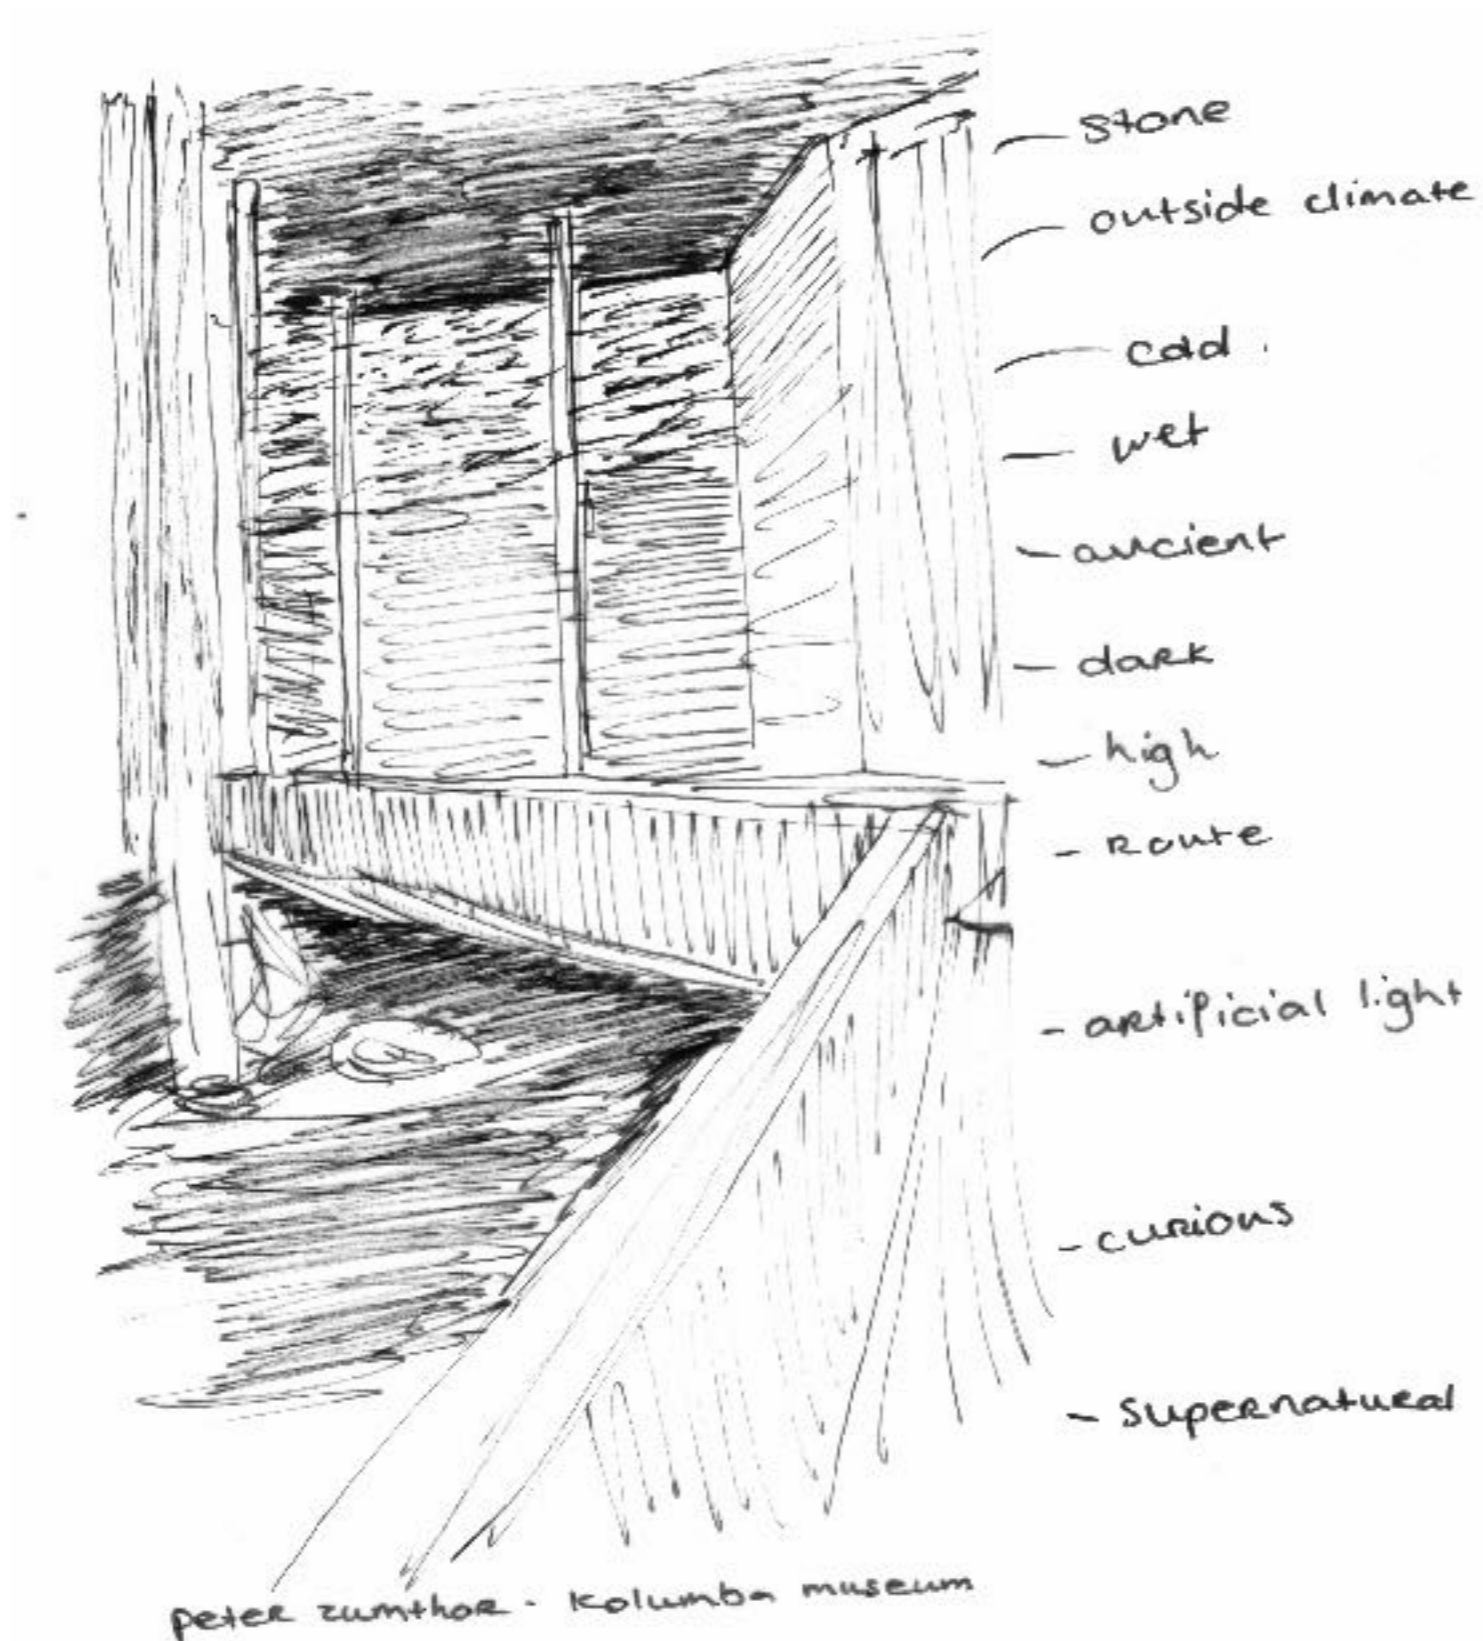 — stone
— outside climate
— cold.
— wet
- ancient
- dark
- high
- Route
- artificial light
- curious
- supernatural
peter zumthor - kolumba museum